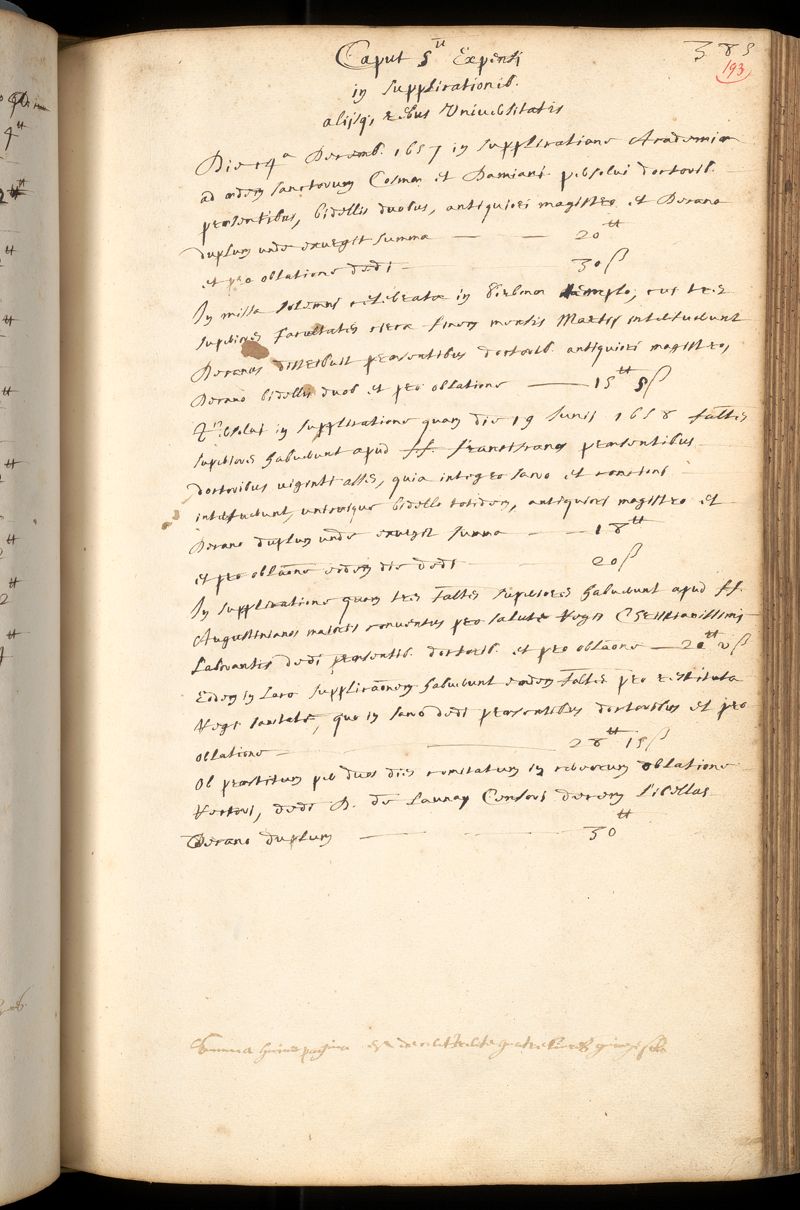 385
193
Caput 5um Expensi
in supplicationib.
alijsq, rebus Universitatis
Die 14a Decemb. 1657 in supplicatione Academiæ
ad ædem sanctorum Cosmæ et Damiani persolui doctorib.
præsentibus, bidellis duobus, antiquiori magistro et Decano
duplum unde exurgit summa — — 20tt
et pro oblatione dedi — 30 ß
In missa solemni celebrata in Virbonæ templo, cui tres
superiores facultates circa finem mensis Martij interfuerunt
Decanus distribuit præsentibus doctorib. antiquiori magistro,
Decano bidellis duob. et pro oblatione — 15tt 5ß
persolui in supplicatione quam die 19 Junij 1658 faltes
superiores habuerunt apud ff. franciscanos præsentibus
doctoribus viginti asses, quia integro sacro et concioni
interfuerunt, unicuique bidello totidem, antiquiori magistro et
Decano duplum unde exurgit summa — 18tt
et pro oblaone eodem die dedi — 20ß
In supplicatione quam tres faltes superiores habuerunt apud ff.
Augustinianos maioris conventus pro salute Regis Christianissimi
Laborantis dedi præsentib. doctorib. et pro oblaone — ß
Eodem in Loco supplicaonem habuerunt eædem faltes pro restituta
Regi sanitate, quo in sacro dedi præsentibus doctoribus et pro
oblatione — 28tt 15ß
Ob præstitum per duos dies comitatum in cereorum oblatione
Rectori, dedi D. de Launay Censori decem Libellas
Decano duplum — — 30tt
Summa huius paginæ est